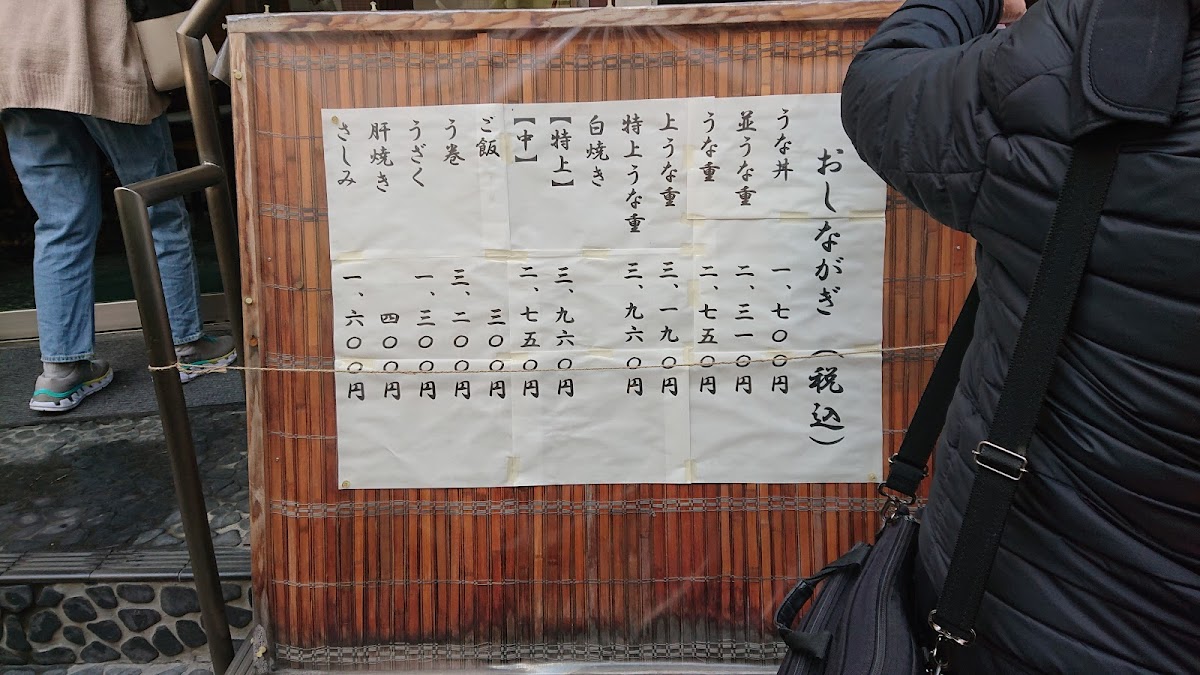 おしながき（税込）
うな丼 一、七〇〇円
並うな重 二、三一〇円
うな重 二、七五〇円
上うな重 三、一九〇円
特上うな重 三、九六〇円
白焼き
【特上】 三、九六〇円
【中】 二、七五〇円
ご飯 三〇〇円
う巻 三、二〇〇円
うざく 一、三〇〇円
肝焼き 四〇〇円
さしみ 一、六〇〇円